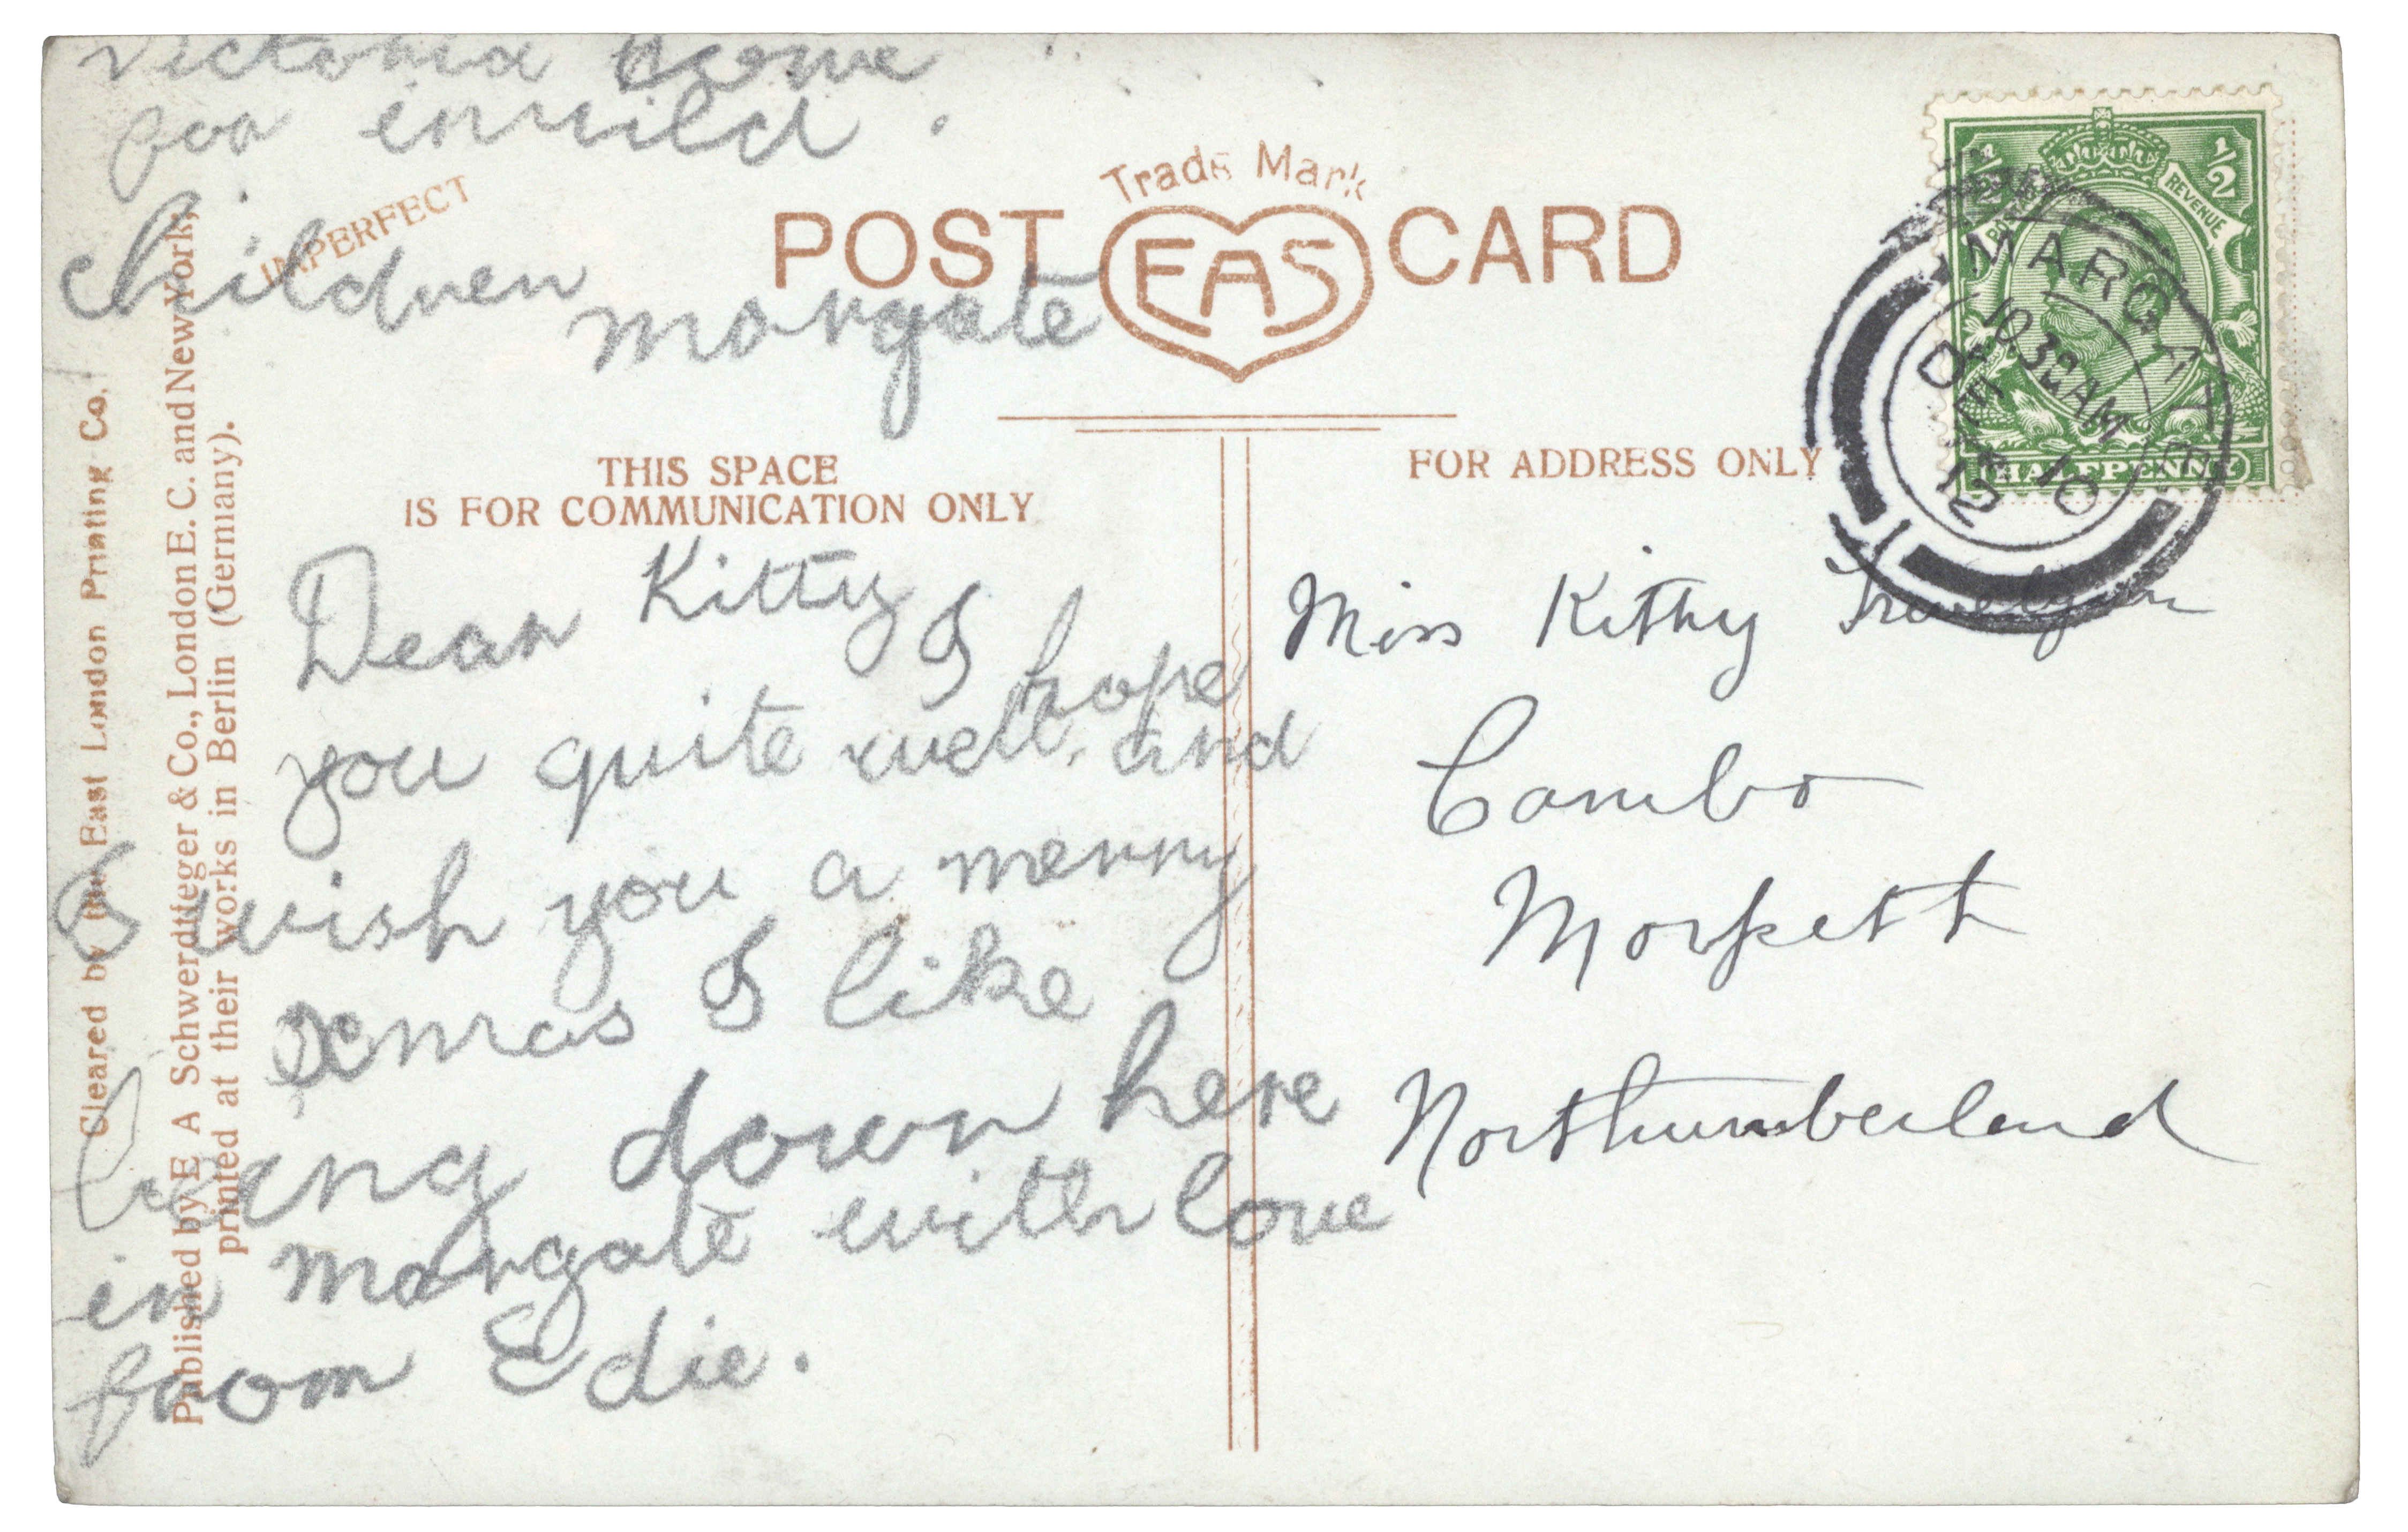 Victoria Home
for invild
Children
Margate
IMPERFECT
Trade Mark
POST EAS CARD
THIS SPACE
IS FOR COMMUNICATION ONLY
FOR ADDRESS ONLY
Dear Kitty I hope
you quite well. and
I wish you a merry
Xmas I like
being down here
in Margate with love
from Edie.
Miss Kitty Trevelyan
Cambo
Morpeth
Northumberland
REVENUE
1/2
1/2
HALFPENNY
MARGATE
10 30 AM
DE 10
12
Cleared by the East London Printing Co.
Published by E A Schwerdtfeger & Co., London E. C. and New York,
printed at their works in Berlin (Germany).